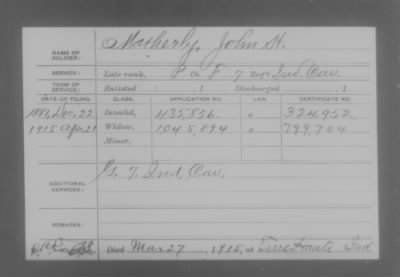 NAME OF SOLDIER: Matherly, John H.
SERVICE: Late rank, P Co. F, 7 Reg't Ind. Cav.
TERM OF SERVICE: Enlisted , 1 Discharged , 1
DATE OF FILING. CLASS. APPLICATION NO. LAW. CERTIFICATE NO.
1881, Dec. 22 Invalid, 435,856. " 324,952
1915 Apr. 21 Widow, 1045,894 " 799,704
Minor,
ADDITIONAL SERVICES: G. 7. Ind. Cav.
REMARKS:
Died Mar 27, 1915, at Terre Haute Ind